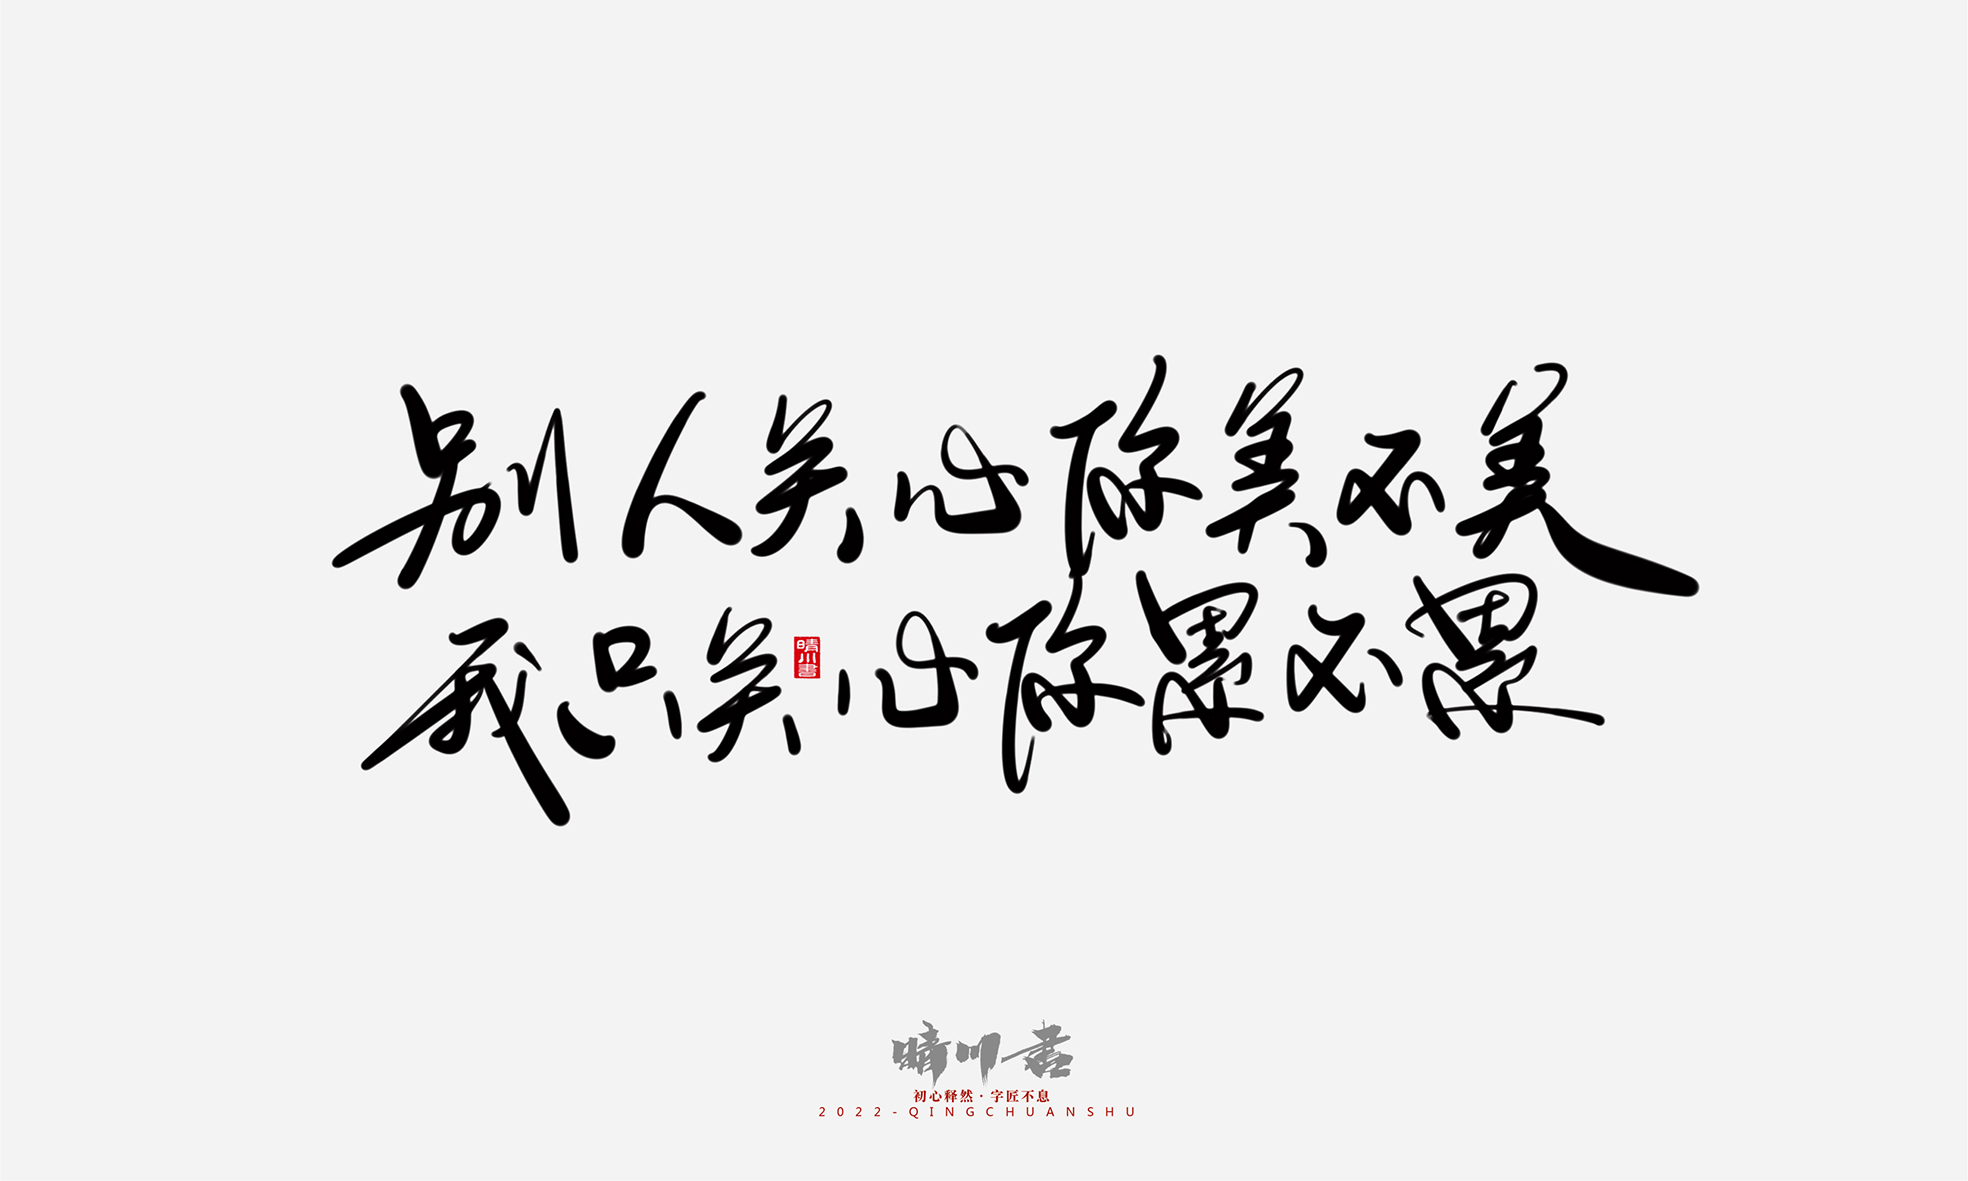 别人关心你美不美
我只关心你累不累
晴川書
晴川书
初心释然·字匠不息
2022-QINGCHUANSHU